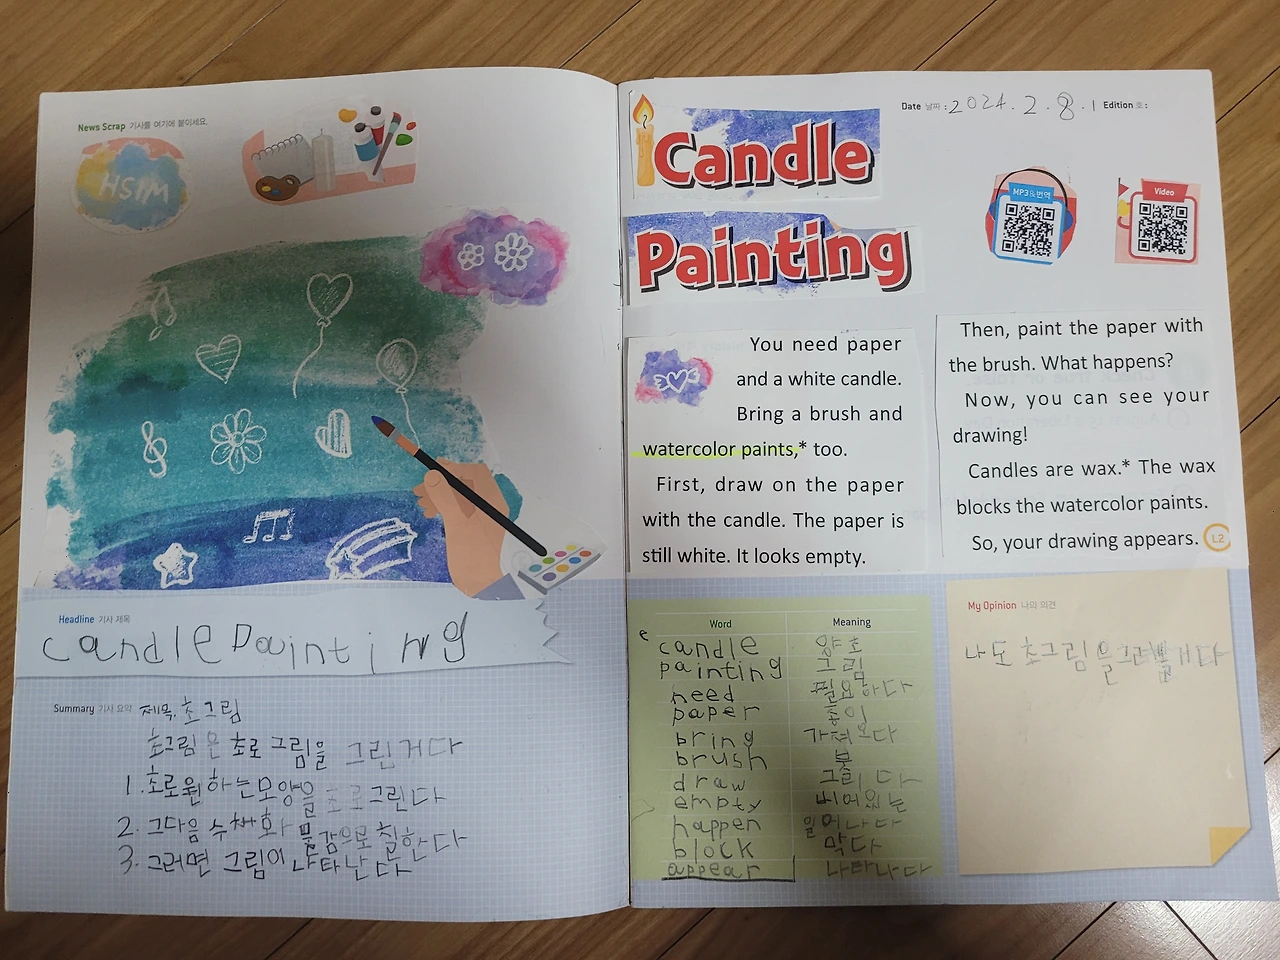 News Scrap 기사를 여기에 붙이세요.
HSIM
Headline 기사 제목
candle Painting
Summary 기사 요약 제목. 초그림
초그림은 초로 그림을 그린거다
1. 초로원하는모양을 초로그린다
2. 그다음 수채화 물감으로 칠한다
3. 그러면 그림이 나타난다
Date 날짜 : 2024. 2. 8. Edition 호 :
Candle
Painting
MP3&번역
Video
You need paper
and a white candle.
Bring a brush and
watercolor paints,* too.
First, draw on the paper
with the candle. The paper is
still white. It looks empty.
Then, paint the paper with
the brush. What happens?
Now, you can see your
drawing!
Candles are wax.* The wax
blocks the watercolor paints.
So, your drawing appears. L2
Word Meaning
candle 양초
painting 그림
need 필요하다
paper 종이
bring 가져오다
brush 붓
draw 그리다
empty 비어있는
happen 일어나다
block 막다
appear 나타나다
My Opinion 나의 의견
나도 초그림을그려볼거다